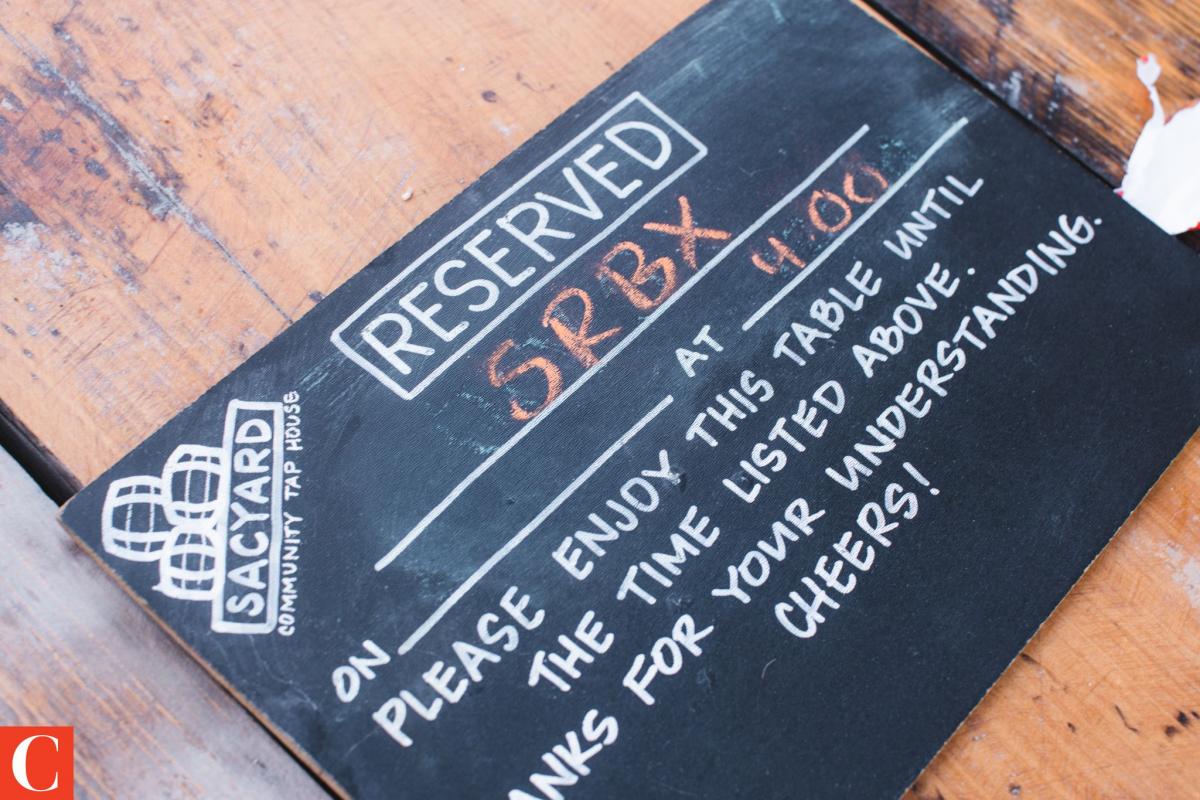 RESERVED
SRBX
ON AT 4:00
PLEASE ENJOY THIS TABLE UNTIL
THE TIME LISTED ABOVE.
ANKS FOR YOUR UNDERSTANDING.
CHEERS!
SACYARD
COMMUNITY TAP HOUSE
C